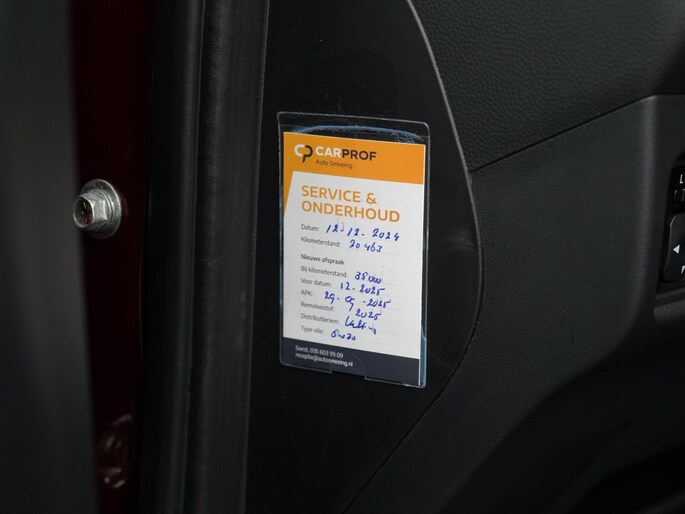 CP CARPROF
Auto Smeeing
SERVICE &
ONDERHOUD
Datum: 12-12-2024
Kilometerstand: 20463
Nieuwe afspraak
Bij kilometerstand: 38000
Voor datum: 12-2025
APK: 29-09-2025
Remvloeistof: 2025
Distributieriem:
Type olie: 0w20
Soest, 035 603 99 09
receptie@autosmeeing.nl
L